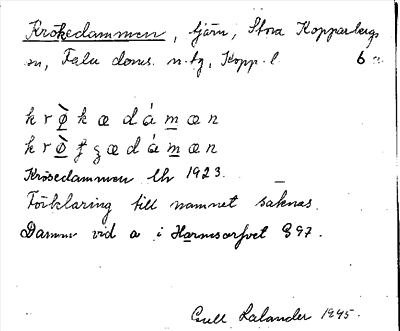 Krökedammen, tjärn, Stora Kopparbergs
sn, Falu doms. n. tg, Kopp. l. 6
k r ö̀ k æ d á m æ n
k r ö̀ æ d á m æ n
Krösedammen lk 1923.
Förklaring till namnet saknas.
Damm vid a i Harmsarvet 897.
Gull Lalander 1945.